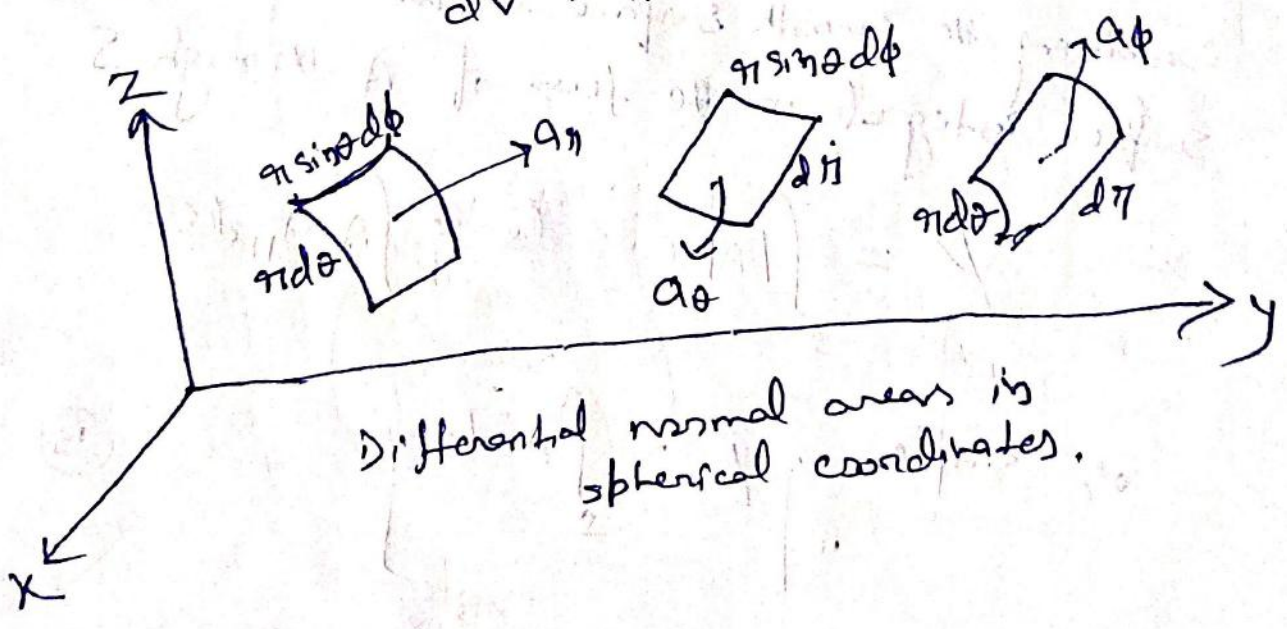 dv
Z
r sinθ dϕ
aϕ
r sinθ dϕ
ar
dr
rdθ
dr
rdθ
aθ
y
Differential normal areas in
spherical coordinates.
X